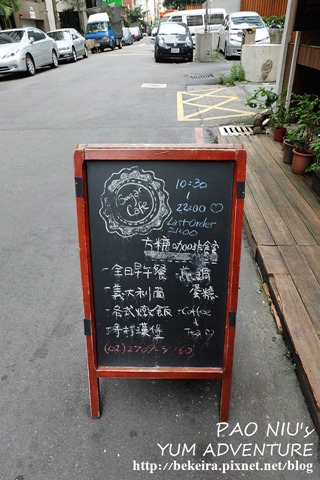 Sugar
Cafe
10:30
22:00
Last Order
21:00
方糖咖啡館
全日早午餐
義大利麵
各式炊飯
手打漢堡
蛋糕
Coffee
Tea
(02)
PAO NIU's
YUM ADVENTURE
http://bekeira.pixnet.net/blog